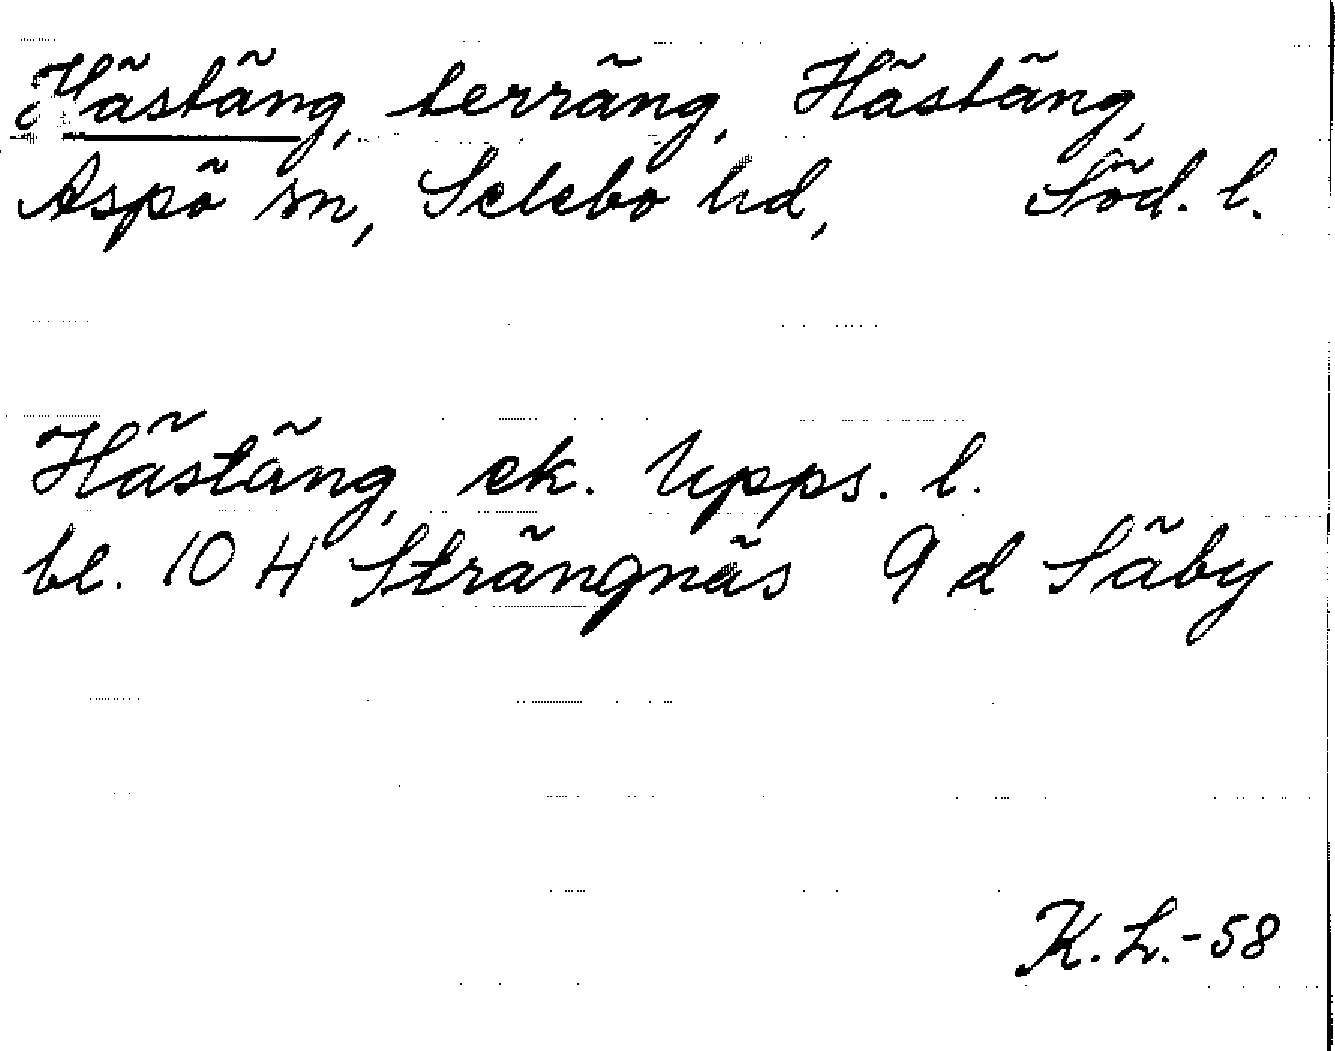 Hästäng, terräng, Hästäng,
Aspö sn, Selebo hd, Söd. l.
Hästäng, ek. Upps. l.
bl. 10 H Strängnäs 9 d Säby
K.L.-58